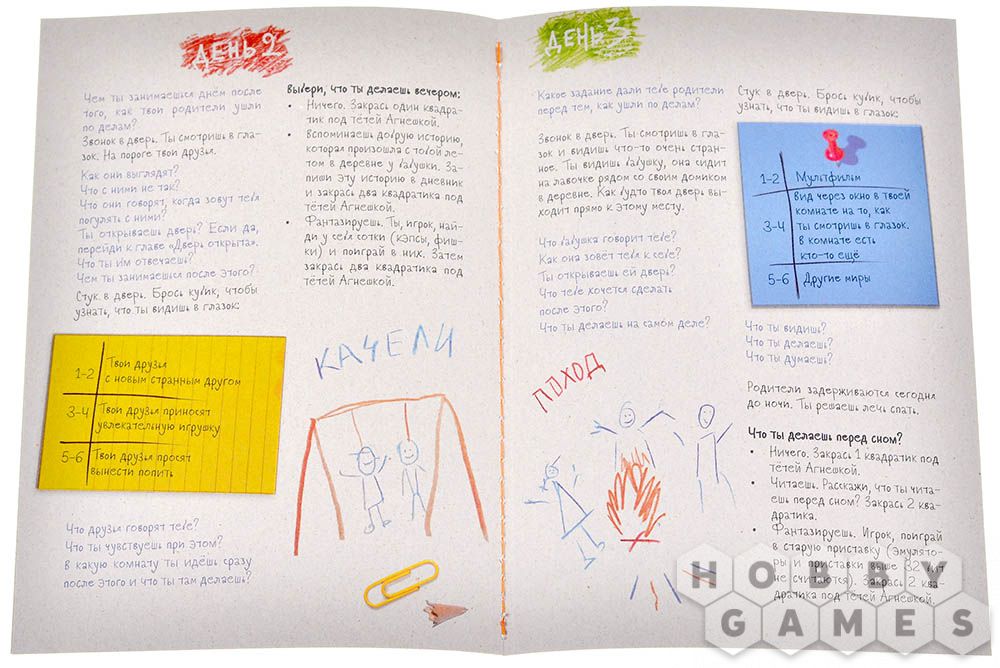 ДЕНЬ 2
Чем ты занимаешься днём после
того, как твои родители ушли
по делам?
Звонок в дверь. Ты смотришь в гла-
зок. На пороге твои друзья.
Как они выглядят?
Что с ними не так?
Что они говорят, когда зовут тебя
погулять с ними?
Ты открываешь дверь? Если да,
перейди к главе «Дверь открыта».
Что ты им отвечаешь?
Чем ты занимаешься после этого?
Стук в дверь. Брось кубик, чтобы
узнать, что ты видишь в глазок:
1-2 Твои друзья
с новым странным другом
3-4 Твои друзья приносят
увлекательную игрушку
5-6 Твои друзья просят
вынести попить
Что друзья говорят тебе?
Что ты чувствуешь при этом?
В какую комнату ты идёшь сразу
после этого и что ты там делаешь?
Выбери, что ты делаешь вечером:
• Ничего. Закрась один квадра-
тик под тётей Агнешкой.
• Вспоминаешь добрую историю,
которая произошла с тобой ле-
том в деревне у бабушки. За-
пиши эту историю в дневник
и закрась два квадратика под
тётей Агнешкой.
• Фантазируешь. Ты, игрок, най-
ди у себя сотки (кэпсы, фиш-
ки) и поиграй в них. Затем
закрась два квадратика под
тётей Агнешкой.
КАЧЕЛИ
ДЕНЬ 3
Какое задание дали тебе родители
перед тем, как ушли по делам?
Звонок в дверь. Ты смотришь в гла-
зок и видишь что-то очень стран-
ное. Ты видишь бабушку, она сидит
на лавочке рядом со своим домиком
в деревне. Как будто твоя дверь вы-
ходит прямо к этому месту.
Что бабушка говорит тебе?
Как она зовёт тебя к себе?
Ты открываешь ей дверь?
Что тебе хочется сделать
после этого?
Что ты делаешь на самом деле?
ПОХОД
Стук в дверь. Брось кубик, чтобы
узнать, что ты видишь в глазок:
1-2 Мультфильм
3-4 Вид через окно в твоей
комнате на то, как
ты смотришь в глазок.
В комнате есть
кто-то ещё
5-6 Другие миры
Что ты видишь?
Что ты делаешь?
Что ты думаешь?
Родители задерживаются сегодня
до ночи. Ты решаешь лечь спать.
Что ты делаешь перед сном?
• Ничего. Закрась 1 квадратик под
тётей Агнешкой.
• Читаешь. Расскажи, что ты чита-
ешь перед сном? Закрась 2 ква-
дратика.
• Фантазируешь. Игрок, поиграй
в старую приставку (эмулято-
ры и приставки выше 32 бит
не считаются). Закрась 2 ква-
дратика под тётей Агнешкой.
HOBBY
GAMES